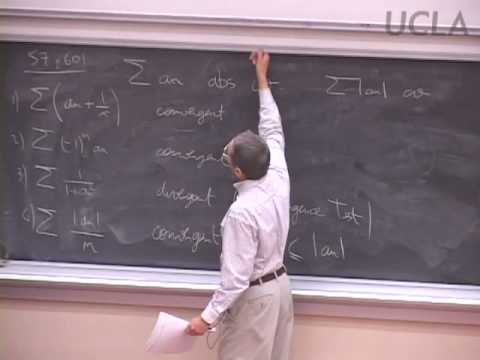 UCLA
57 p 601
∑ an abs cv ∑ |an| cv
1) ∑ (an + 1/n) convergent
2) ∑ (-1)^n an convergent
3) ∑ 1/(1+an²) divergent
4) ∑ |an|/n convergent
Test
≤ |an|